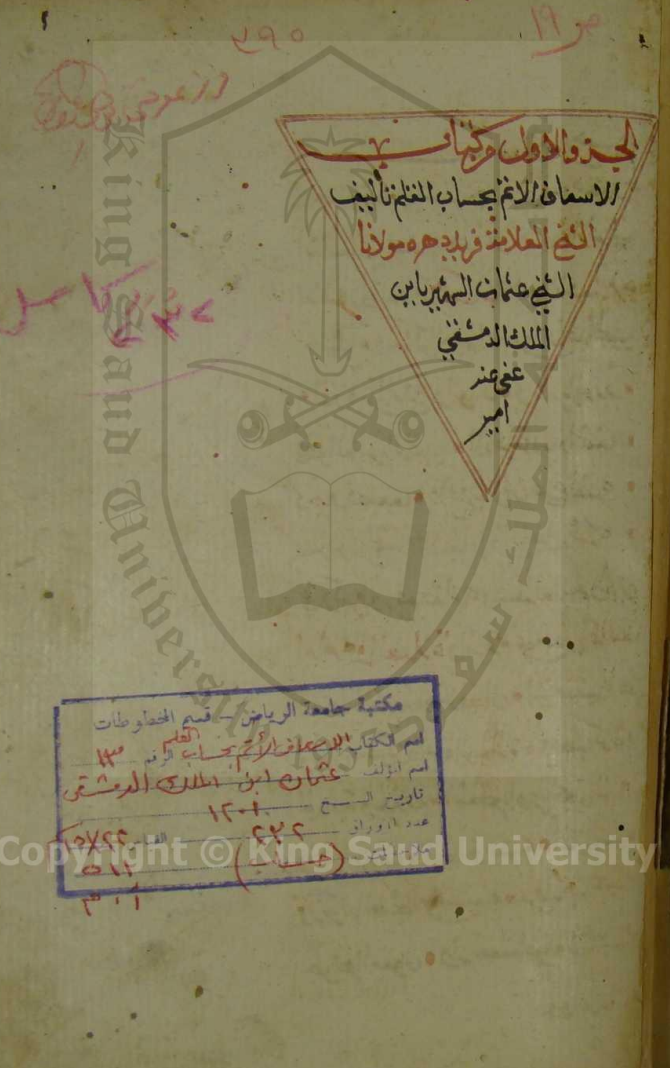 ص ١٩
٣٩٥
الجزء الاول من كتاب
الاسعاف الاتم بحساب القلم تأليف
الشيخ العلامة فريد دهره مولانا
الشيخ عثمان الشهير بابن
الملك الدمشقي
عفى عنه
امين
كامل
مكتبة جامعة الرياض - قسم المخطوطات
اسم الكتاب الاسعاف الأتم بحساب القلم الرقم ١٣
اسم المؤلف عثمان ابن الملك الدمشقي
تاريخ النسخ ١٢٠١
عدد الأوراق ٢٣٢ القياس
(حساب)
٥١١
King Saud University
Copyright © King Saud University